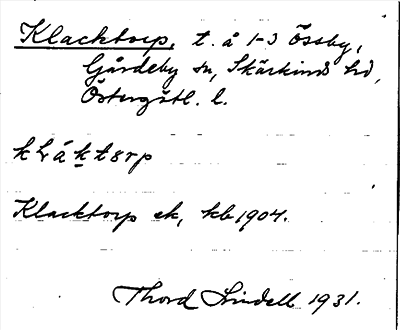 Klacktorp, t. å 1-3 Össby,
Gårdeby sn, Skärkinds hd,
Östergötl. l.
Klacktorp ek, kb 1904.
Thord Lindell 1931.